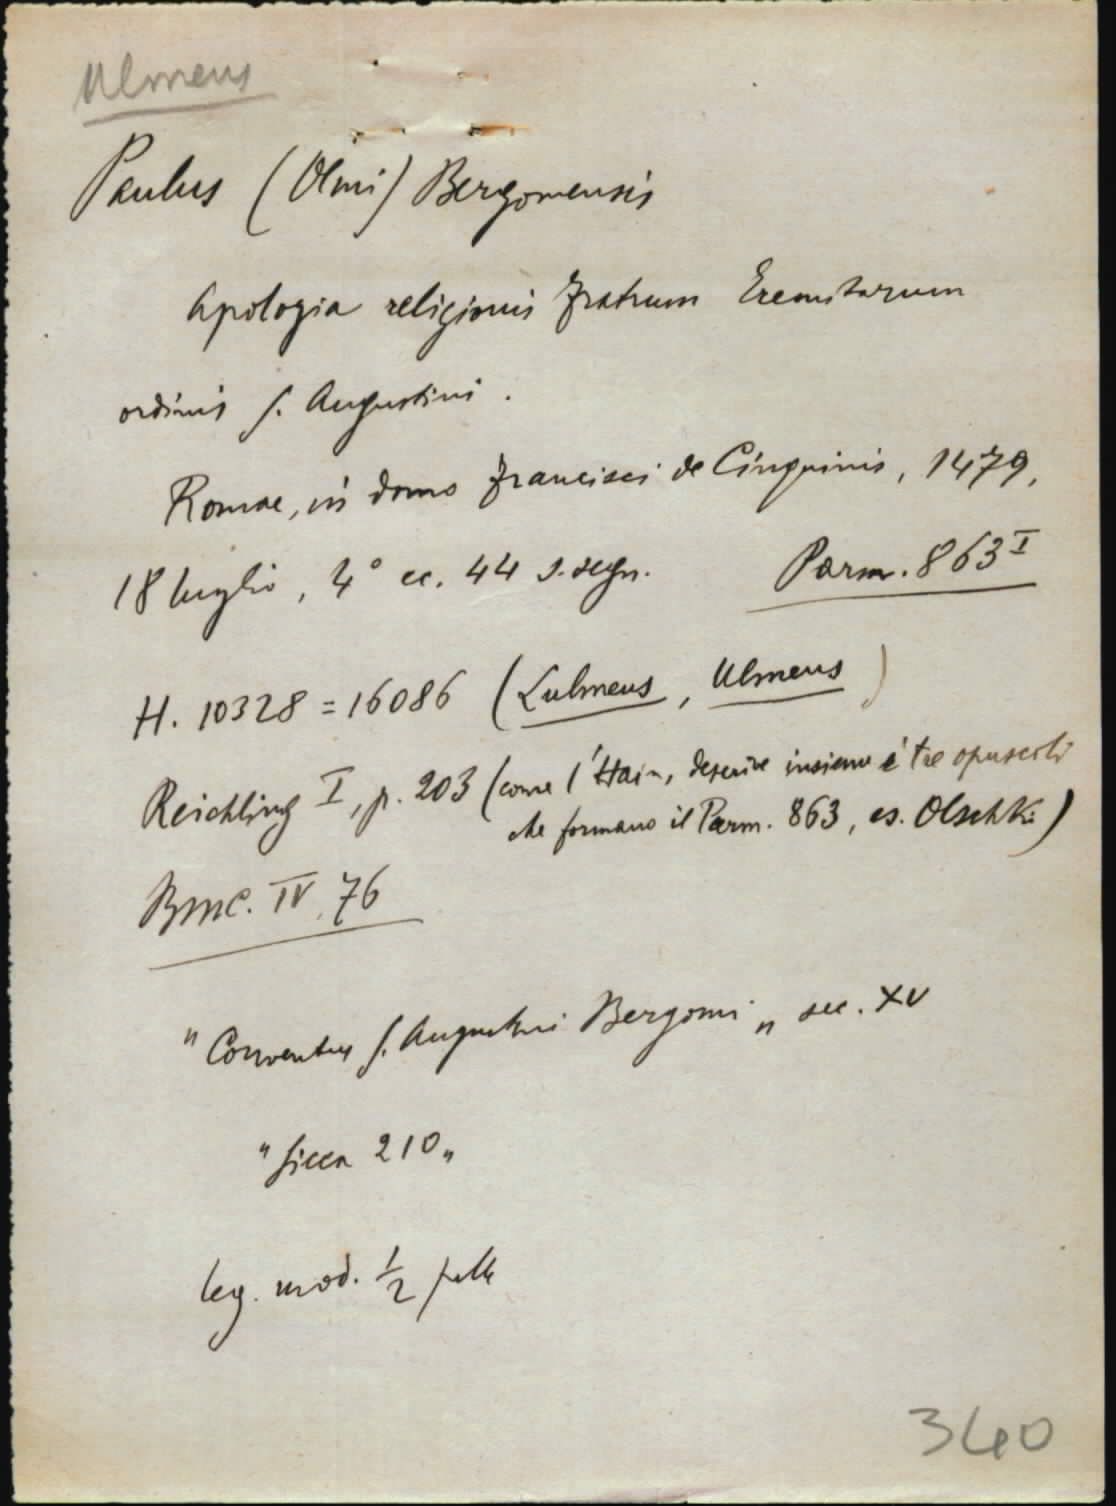 Ulmeus
Paulus (Olmi) Bergomensis
Apologia religionis fratrum Eremitarum
ordinis s. Augustini.
Romae, in domo Francisci de Cinquinis, 1479,
18 luglio, 4° cc. 44 s. segn. Parm. 863 I
H. 10328 = 16086 (Lulmeus, Ulmeus)
Reichling I, p. 203 (come l'Hain, descrive insieme i tre opuscoli
che formano il Parm. 863, es. Olschki)
BMC. IV, 76
"Conventus s. Augustini Bergomi" sec. XV
210"
leg. mod. 1/2 pelle
340